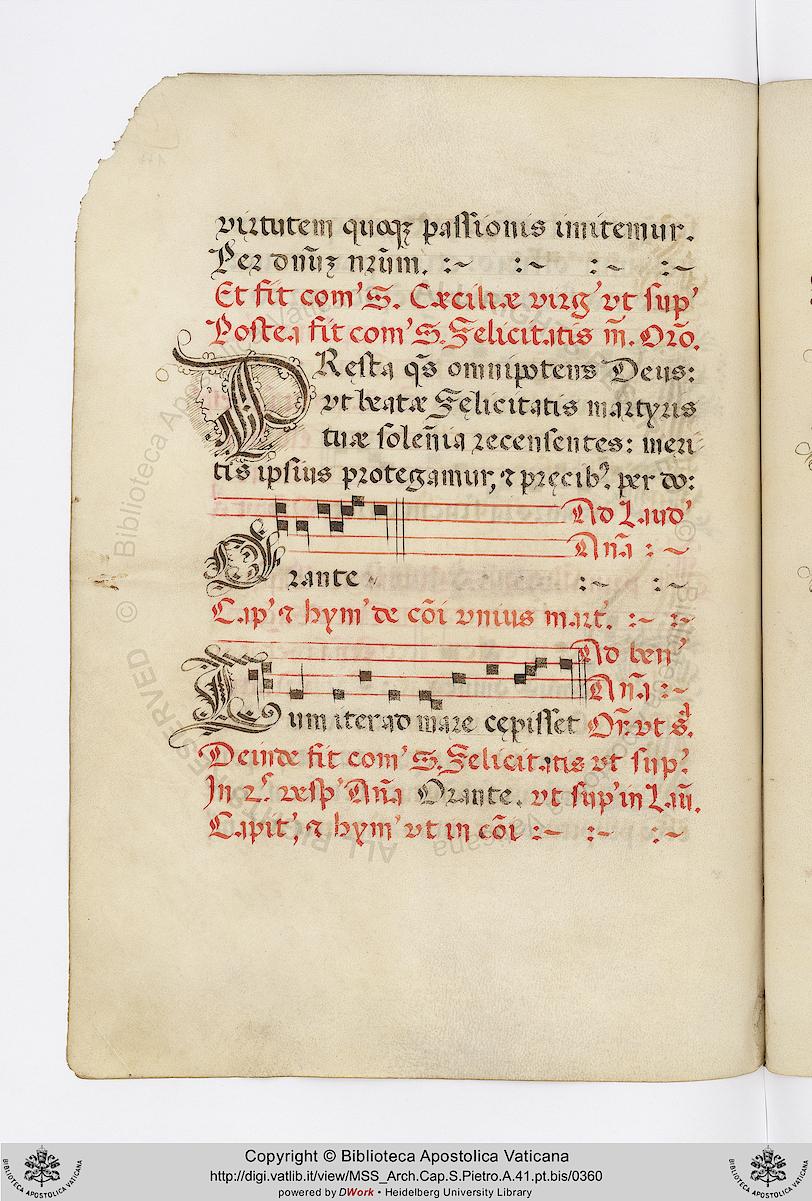 virtutem quoqȝ passionis imitemur.
Per dnūȝ nrūm. :~ :~ :~ :~
Et fit com' S. Cæciliæ virg' vt sup'
Postea fit com' S. Felicitatis m̄. Orō.
PRęsta qs̄ omnipotens Deus:
vt beatæ Fęlicitatis martyris
tuæ solen̄ia recensentes: meri
tis ipsius protegamur, ⁊ pręcib'. per do:
Ad Laud'
Orante Anā :~
:~ :~
Cap' ⁊ hym' de cōi vnius mart'. :~ :~
Ad ben'
Anā :~
Dum iter ad mare cępisset Or̄. vt s.
Deinde fit com' S. Felicitatis vt sup'
In 2.' vesp' Anā Orante. vt sup' in Laū.
Capit', ⁊ hym' vt in cōi :~ :~ :~
Copyright © Biblioteca Apostolica Vaticana
http://digi.vatlib.it/view/MSS_Arch.Cap.S.Pietro.A.41.pt.bis/0360
powered by DWork • Heidelberg University Library
BIBLIOTECA APOSTOLICA VATICANA
BIBLIOTECA APOSTOLICA VATICANA